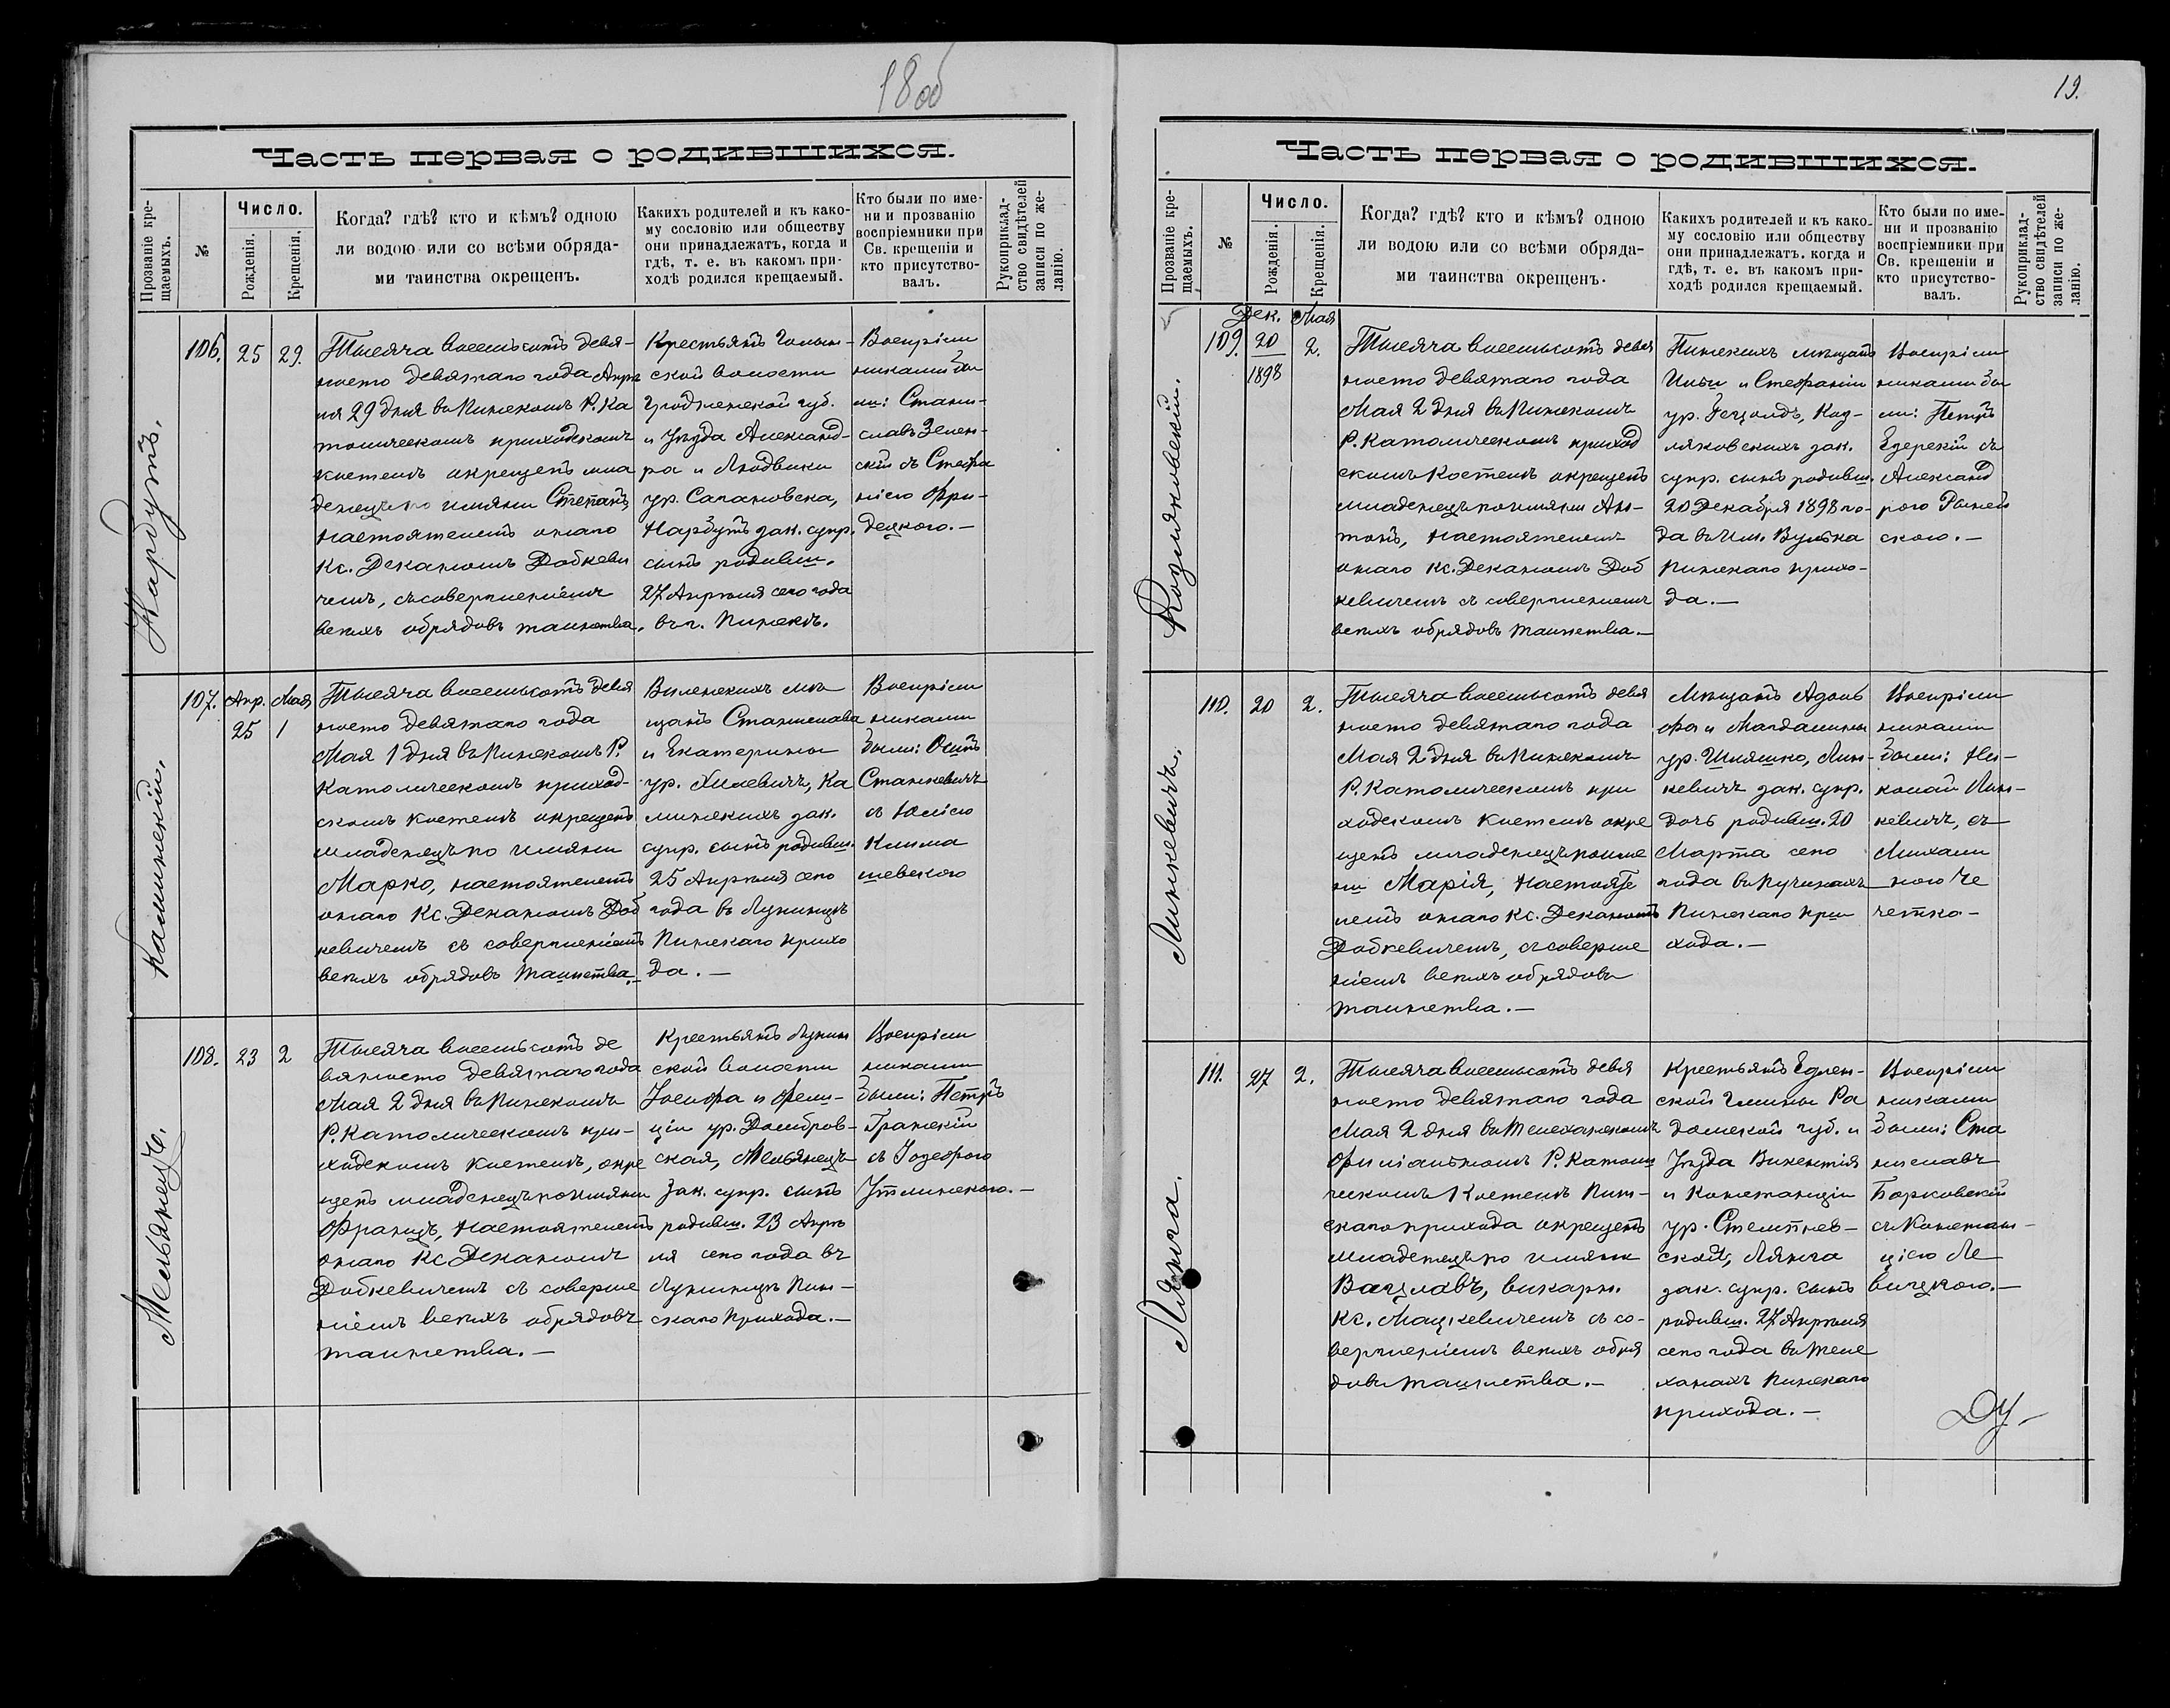 18 об
Часть первая о родившихся.
Прозваніе кре-
щаемыхъ.
№
Число.
Рожденія.
Крещенія.
Когда? гдѣ? кто и кѣмъ? одною
ли водою или со всѣми обряда-
ми таинства окрещенъ.
Какихъ родителей и къ како-
му сословію или обществу
они принадлежатъ, когда и
гдѣ, т. е. въ какомъ при-
ходѣ родился крещаемый.
Кто были по име-
ни и прозванію
воспріемники при
Св. крещеніи и
кто присутство-
валъ.
Рукоприклад-
ство свидѣтелей
записи по же-
ланію.
Нарбутъ.
106.
25
29.
Тысяча восемьсотъ девя-
носто девятаго года Апрѣ
ля 29 дня въ Пинскомъ Р. Ка
толическомъ приходскомъ
костелѣ окрещенъ мла
денецъ по имяни Степанъ,
настоятелемъ онаго
Кс. Деканомъ Добкеви
чемъ, съ совершеніемъ
всѣхъ обрядовъ таинства.
Крестьянъ
ской волости
Гродненской губ.
и Уѣзда Александ-
ра и Людвики
ур. Сапановска,
Нарбутъ зак. супр.
сынъ родивш.
27 Апрѣля сего года
въ г. Пинскѣ.
Воспріем
никами бы
ли: Стани-
славъ Зелен-
скій съ Стефа
ніею Фри-
децкого.—
Калинскій.
107.
Апр.
25
Мая
1
Тысяча восемьсотъ девя
носто девятаго года
Мая 1 дня въ Пинскомъ Р.
Католическомъ приход-
скомъ костелѣ окрещенъ
младенецъ по имяни
Марко, настоятелемъ
онаго Кс. Деканомъ Доб
кевичемъ съ совершеніемъ
всѣхъ обрядовъ таинства.—
Виленскихъ мѣ
щанъ Станислава
и Екатерины
ур. Хилевичъ, Ка
линскихъ зак.
супр. сынъ родивш.
25 Апрѣля сего
года въ Лунинцѣ
Пинскаго прихо
да.—
Воспріем
никами
были: Осипъ
Станкевичъ
съ Юліею
Клима
шевского
Мельянецъ.
108.
23
2
Тысяча восемьсотъ де
вяносто девятаго года
Мая 2 дня въ Пинскомъ
Р. Католическомъ при-
ходскомъ костелѣ, окре
щенъ младенецъ по имяни
Францъ, настоятелемъ
онаго Кс Деканомъ
Добкевичемъ съ соверше
ніемъ всѣхъ обрядовъ
таинства.—
Крестьянъ Лунин
ской волости
Іосифа и Фели-
ціи ур. Домбров-
ская, Мельянецъ
Зак. супр. сынъ
родивш. 23 Апрѣ
ля сего года въ
Лунинцѣ Пин-
скаго прихода.—
Воспріем
никами
были: Петръ
Гранскій
съ Іозефого
—
19.
Часть первая о родившихся.
Прозваніе кре-
щаемыхъ.
№
Число.
Рожденія.
Крещенія.
Когда? гдѣ? кто и кѣмъ? одною
ли водою или со всѣми обряда-
ми таинства окрещенъ.
Какихъ родителей и къ како-
му сословію или обществу
они принадлежатъ. когда и
гдѣ, т. е. въ какомъ при-
ходѣ родился крещаемый.
Кто были по име-
ни и прозванію
воспріемники при
Св. крещеніи и
кто присутство-
валъ.
Рукоприклад-
ство свидѣтелей
записи по же-
ланію.
Козляковскій.
109.
Дек.
20
1898
Мая
2.
Тысяча восемьсотъ девя
носто девятаго года
Мая 2 дня въ Пинскомъ
Р. Католическомъ приход
скомъ Костелѣ окрещенъ
младенецъ по имяни Ан-
тонъ, настоятелемъ
онаго Кс. Деканомъ Доб
кевичемъ съ совершеніемъ
всѣхъ обрядовъ таинства.—
Пинскихъ мѣщанъ
Ильи и Стефаніи
ур. Гецольдъ, Коз-
ляковскихъ зак.
супр. сынъ родивш.
20 Декабря 1898 го-
да въ Им. Вулька
Пинскаго прихо-
да.—
Воспріем
никами бы
ли: Петръ
Едерскій съ
Александ
рого
ского.—
Линкевичъ.
110.
20
2.
Тысяча восемьсотъ девя
носто девятаго года
Мая 2 дня въ Пинскомъ
Р. Католическомъ при
ходскомъ костелѣ окре
щенъ младенецъ по име
ни Марія, настояте
лемъ онаго Кс. Деканомъ
Добкевичемъ, съ соверше
ніемъ всѣхъ обрядовъ
таинства.—
Мѣщанъ Адоль
фа и Магдалины
ур. Шляшко, Лин-
кевичъ зак. супр.
дочь родивш. 20
Марта сего
года въ
Пинскаго при
хода.—
Воспріем
никами
были: Ни-
колай Лин-
кевичъ, съ
Михали
ного Че
четко-
Лянга.
111.
27
2.
Тысяча восемьсотъ девя
носто девятаго года
Мая 2 дня въ Телеханскомъ
Филіальномъ Р. Католи
ческомъ Костелѣ Пин-
скаго прихода окрещенъ
младенецъ по имяни
Вацлавъ, викарн.
Кс. Мацкевичемъ съ со-
вершеніемъ всѣхъ обря
довъ таинства.—
Крестьянъ Едлен-
ской Гмины Ра
домской губ. и
Уѣзда Викентія
и Констанціи
ур. Стемпнев-
ской, Лянга
зак. супр. сынъ
родивш. 27 Апрѣля
сего года въ Теле
ханахъ Пинскаго
прихода.—
Воспріем
никами
были: Ста
ниславъ
Борковскій
съ Констан-
ціею Ле
вицкого.—